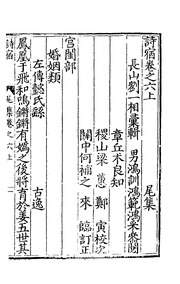 詩宿卷之六上
尾集
長山劉一相彙輯 男鴻訓鴻範鴻釆叅閱
章丘木良知
稷山梁 鄭寅校次
關中何補之來 臨訂正
宮閨部
婚姻類
左傳懿氏繇 古逸
鳳凰于飛和鳴鏘鏘有媯之後將育於姜五世其
詩宿 尾集卷之六上 一